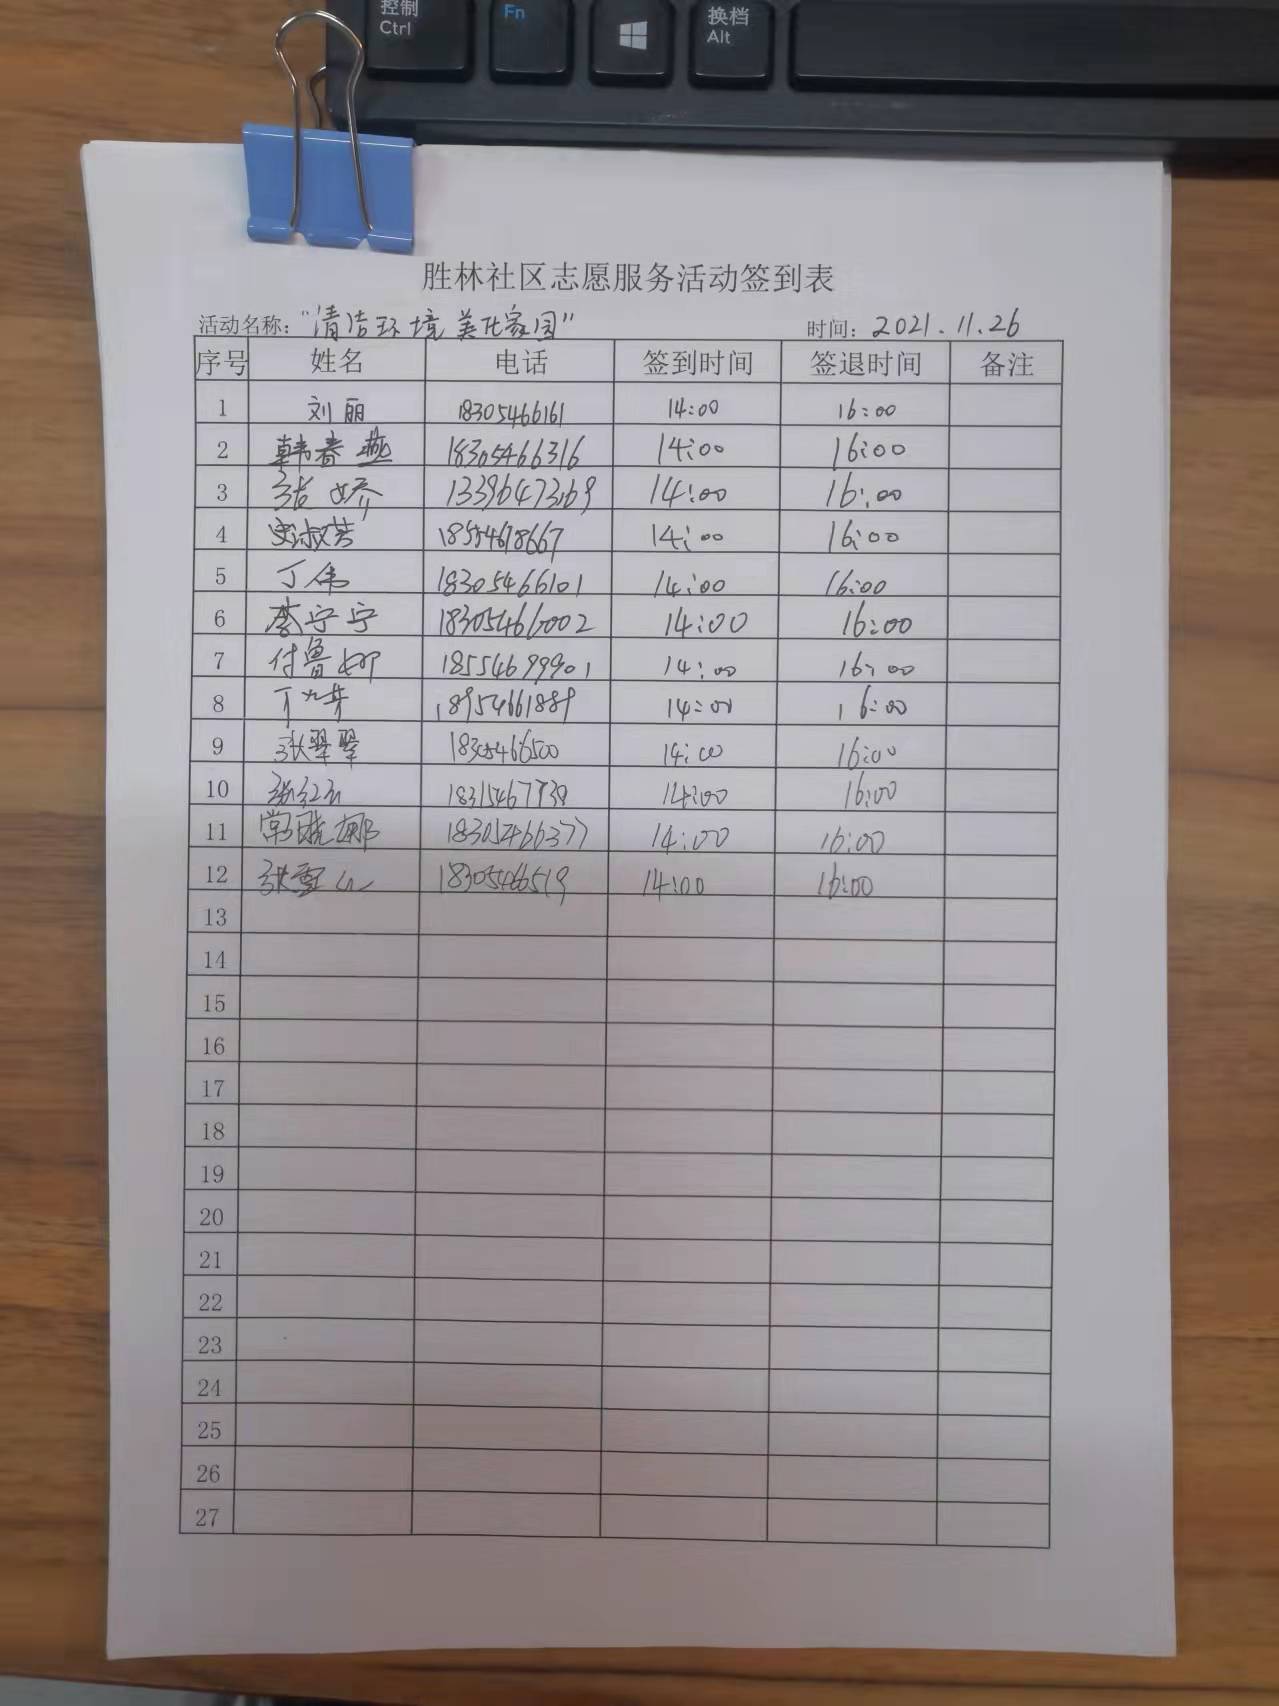 控制
Ctrl
Fn
换档
Alt
胜林社区志愿服务活动签到表
活动名称："清洁环境 美化家园" 时间：2021.11.26
序号 姓名 电话 签到时间 签退时间 备注
1 刘丽 18305466161 14:00 16:00
2 韩春燕 18305466316 14:00 16:00
3 张娇 14:00 16:00
4 淑芳 14:00 16:00
5 丁伟 18305466101 14:00 16:00
6 李宁宁 18305466002 14:00 16:00
7 付鲁娜 18554699901 14:00 16:00
8 18954661889 14:00 16:00
9 张翠翠 14:00 16:00
10 张红云 14:00 16:00
11 常晓娜 18305466377 14:00 16:00
12 张雪 18305466519 14:00 16:00
13
14
15
16
17
18
19
20
21
22
23
24
25
26
27